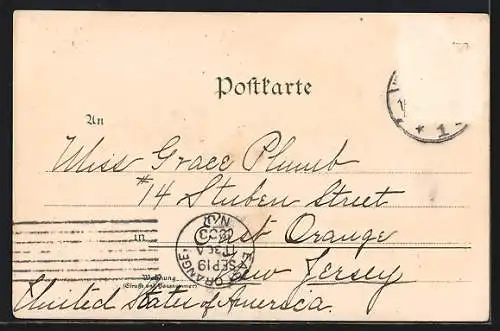 Postkarte
An
Miss Grace Plumb
#14 Stuben Street
in East Orange
New Jersey
Wohnung
(Straße und Hausnummer)
United States of America.
EAST ORANGE, N.J.
SEP 19
1903
* 1